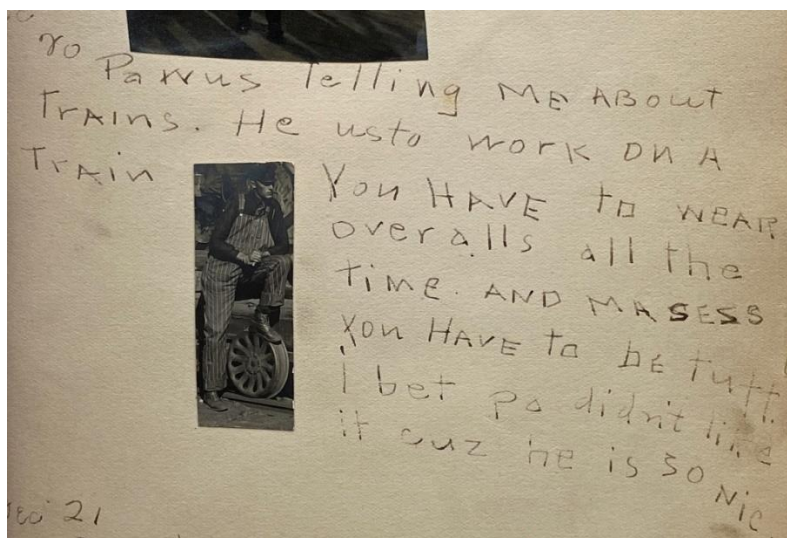 Pa wus Telling ME ABOUT
TrAINs. He usto work ON A
TrAIN
You HAVE to WEAR
overalls all the
time. AND MASESS
You HAVE to bE tuff.
I bet Pa didn't like
it cuz he is so Nic
21